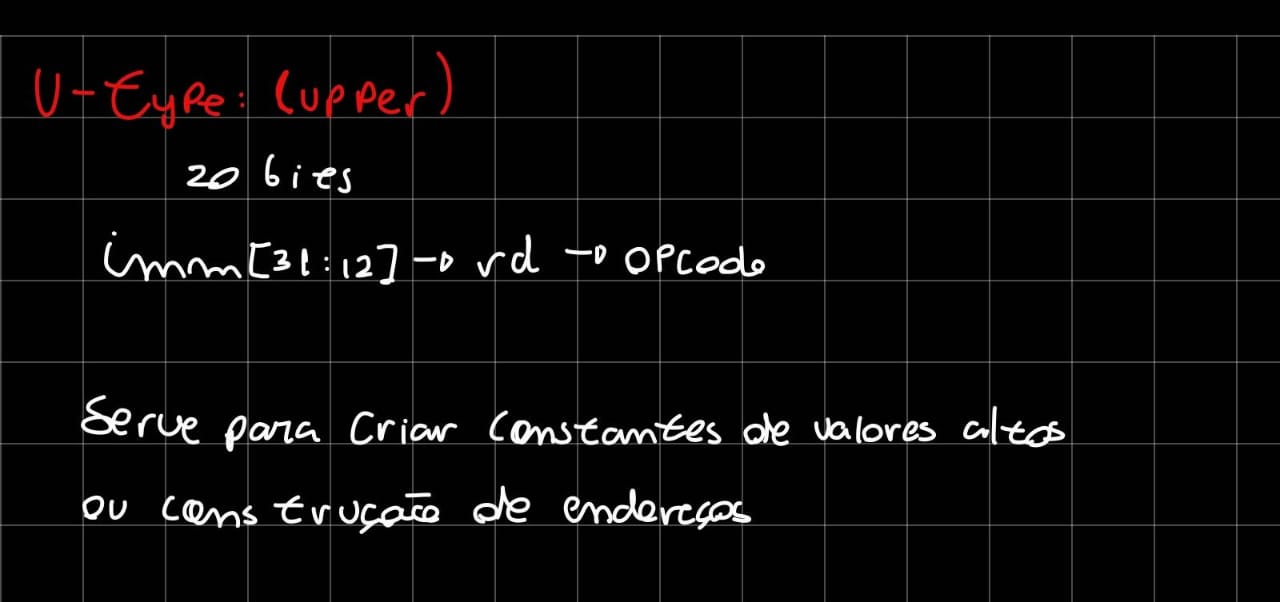 U-type: (upper)
20 bits
imm[31:12] → rd → opcode
Serve para criar constantes de valores altos
ou construção de endereços